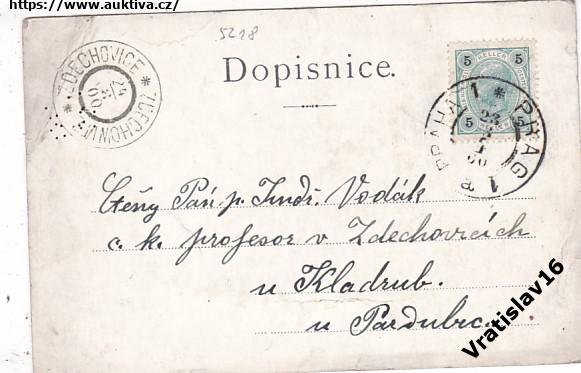 https://www.auktiva.cz/
5218
Dopisnice.
ZDECHOVICE
24
00
ZDECHOVICE
5 HELLER 5
5 5
PRAHA 1 * PRAG 1
23
00
Ctěný Pán p. Jindř. Vodák
c. k. profesor v Zdechovicích
u Kladrub.
u Pardubic.
Vratislav16